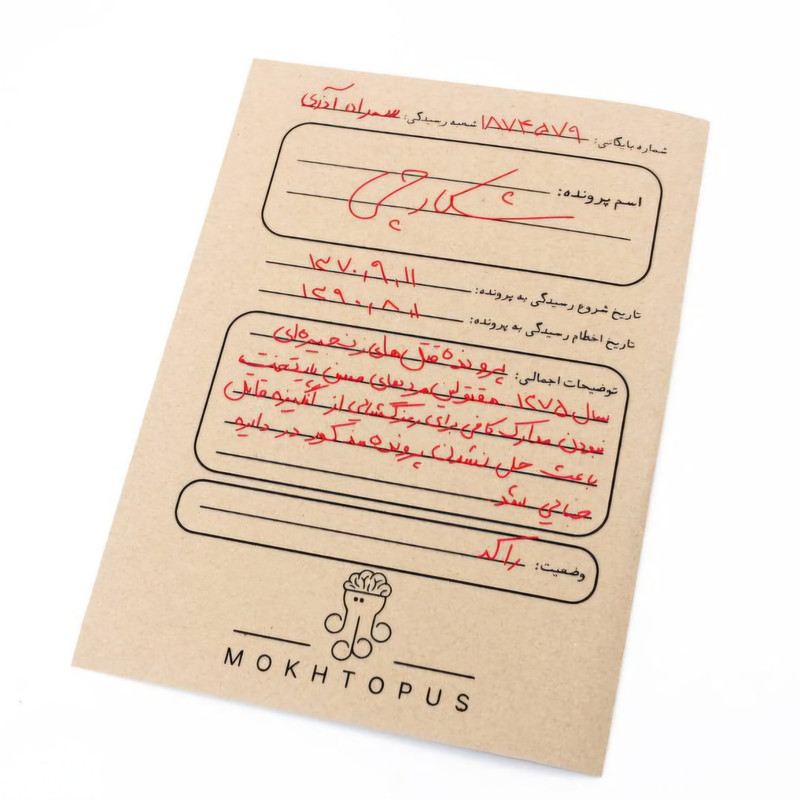 شماره بایگانی: ۱۸۷۴۵۷۹ شعبه رسیدگی: سهراه آذری
اسم پرونده:
شکارچی
تاریخ شروع رسیدگی به پرونده: ۱۳۷۰,۹,۱۱
تاریخ اخطام رسیدگی به پرونده: ۱۳۹۰,۸,۱
توضیحات اجمالی: پرونده قتل‌های زنجیره‌ای
سال ۱۳۷۵ مقتولین مردهای مسن پایتخت
نبودن مدارک کافی برای رمزگشایی از انگیزه قاتل
باعث حل نشدن پرونده مذکور در دایره
جنایی شد
وضعیت: راکد
MOKHTOPUS